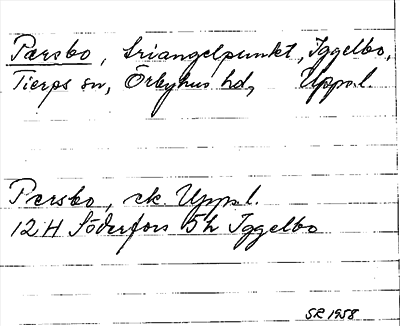 Parsbo, triangelpunkt, Iggelbo,
Tierps sn, Örbyhus hd, Uppsl.
Persbo, ek. Uppsl.
12H Söderfors 5h Iggelbo
SR 1958